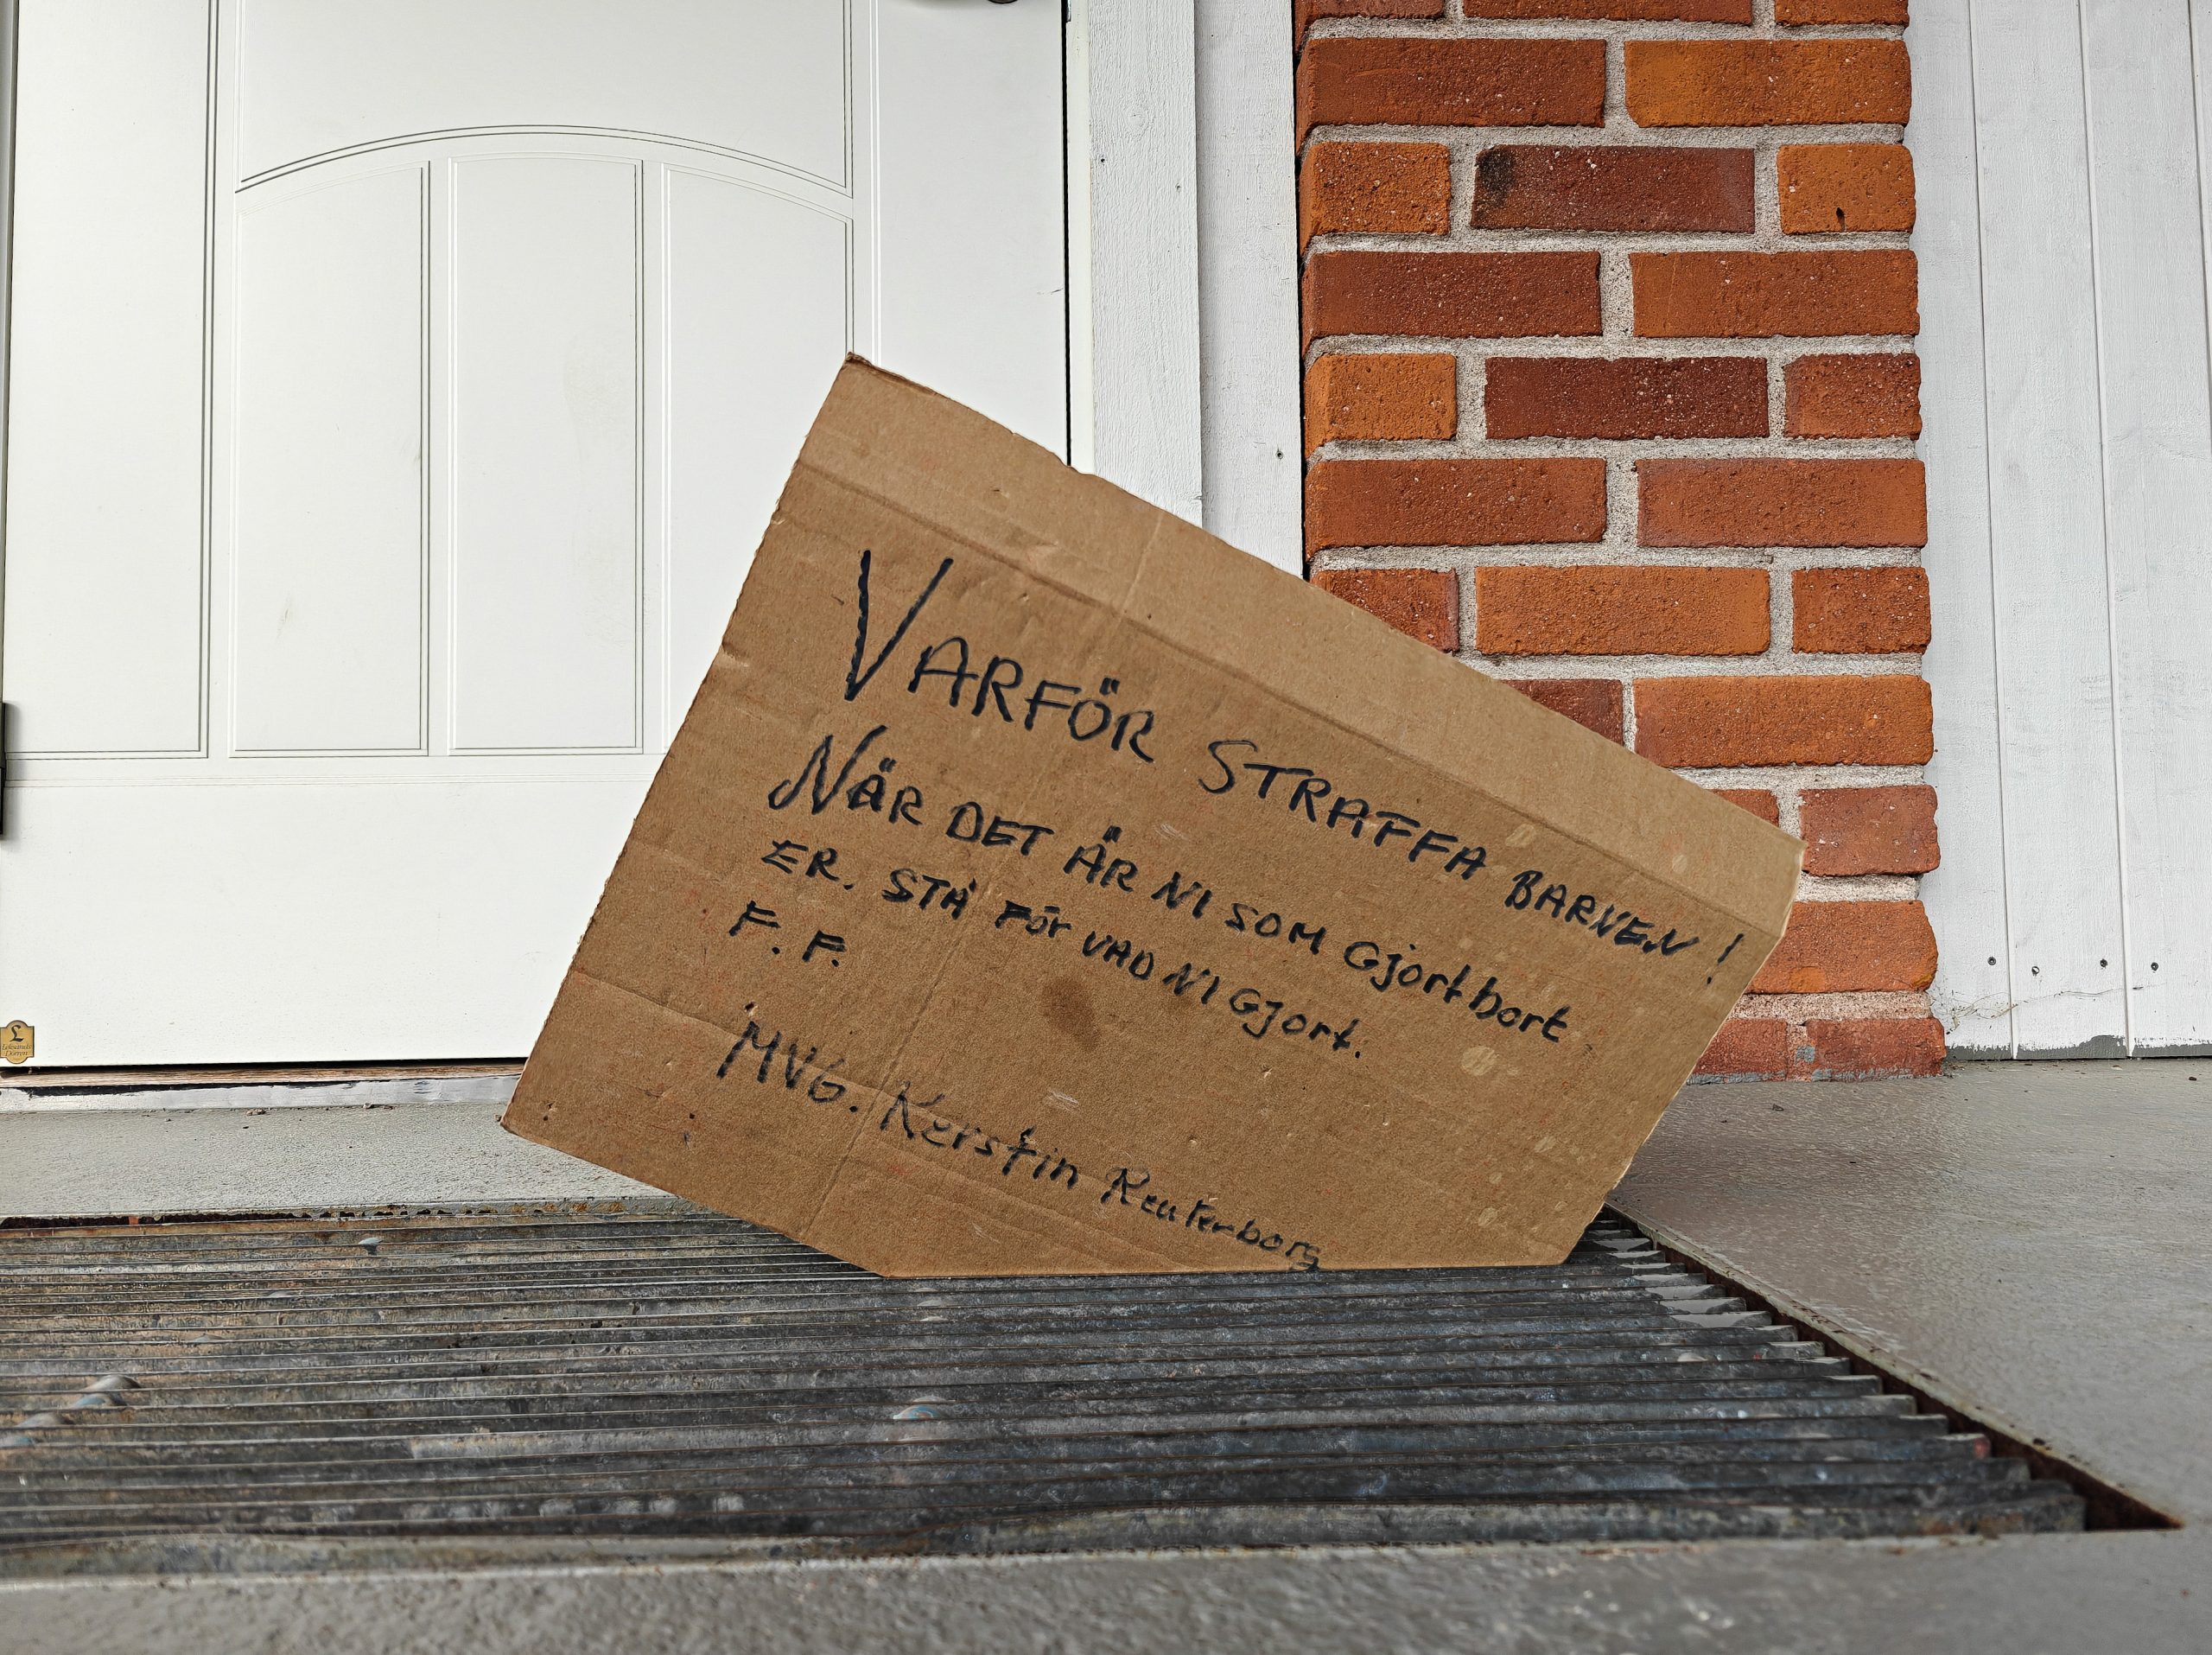 VARFÖR STRAFFA BARNEN!
NÄR DET ÄR NI SOM Gjort bort
ER. STÅ FÖR VAD NI GJort.
F. F.
MVG. Kerstin Reuterborg